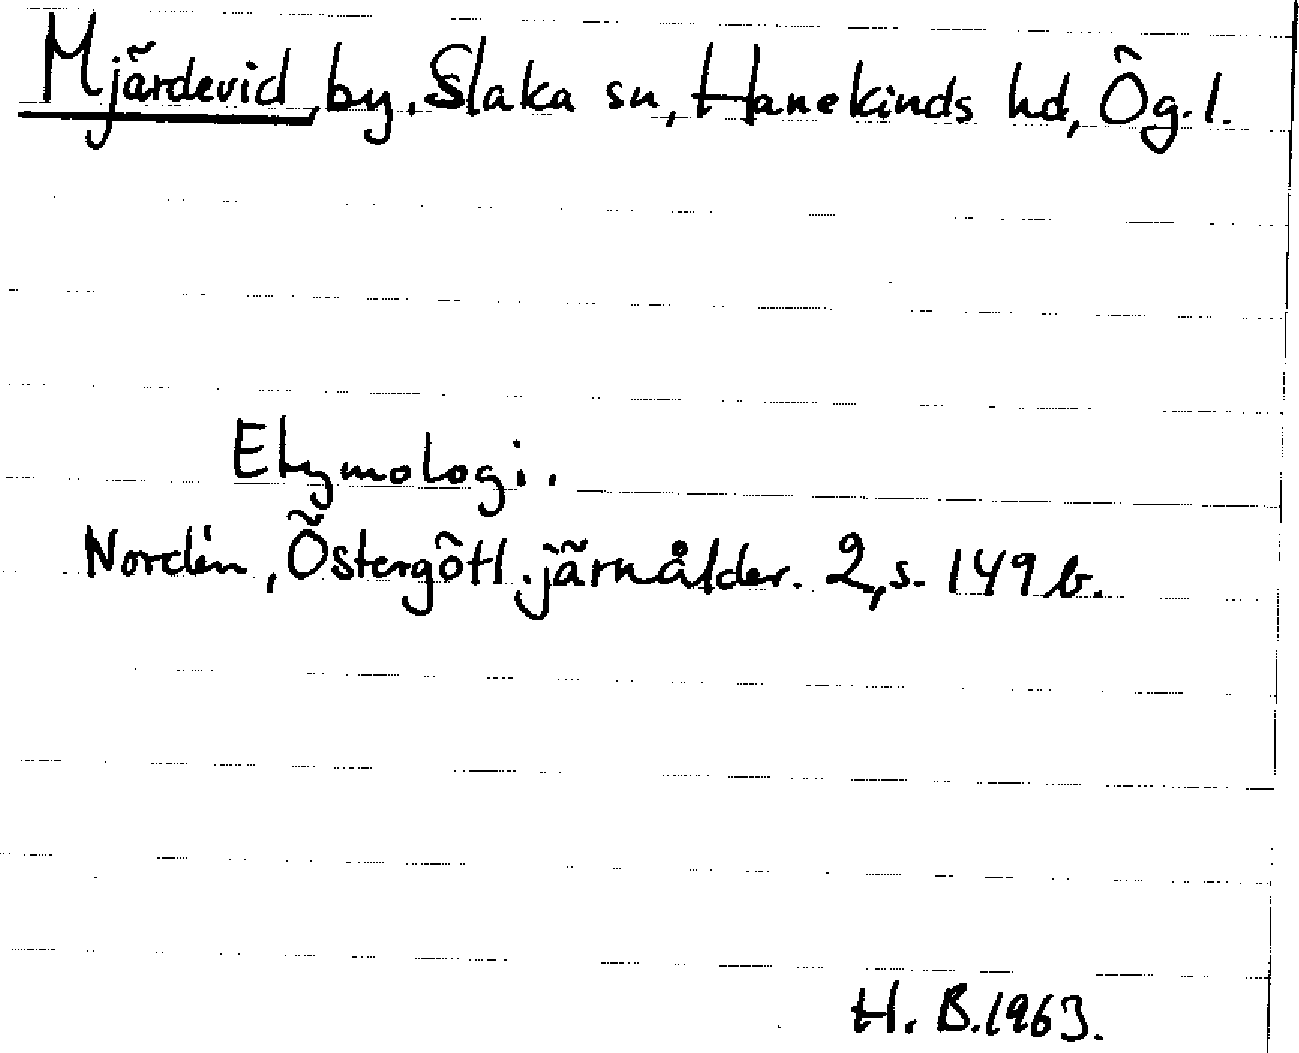 Mjärdevid, by. Slaka sn, Hanekinds hd, Ög. l.
Etymologi.
Nordén, Östergötl. järnålder. 2, s. 149 b.
H. B. 1963.